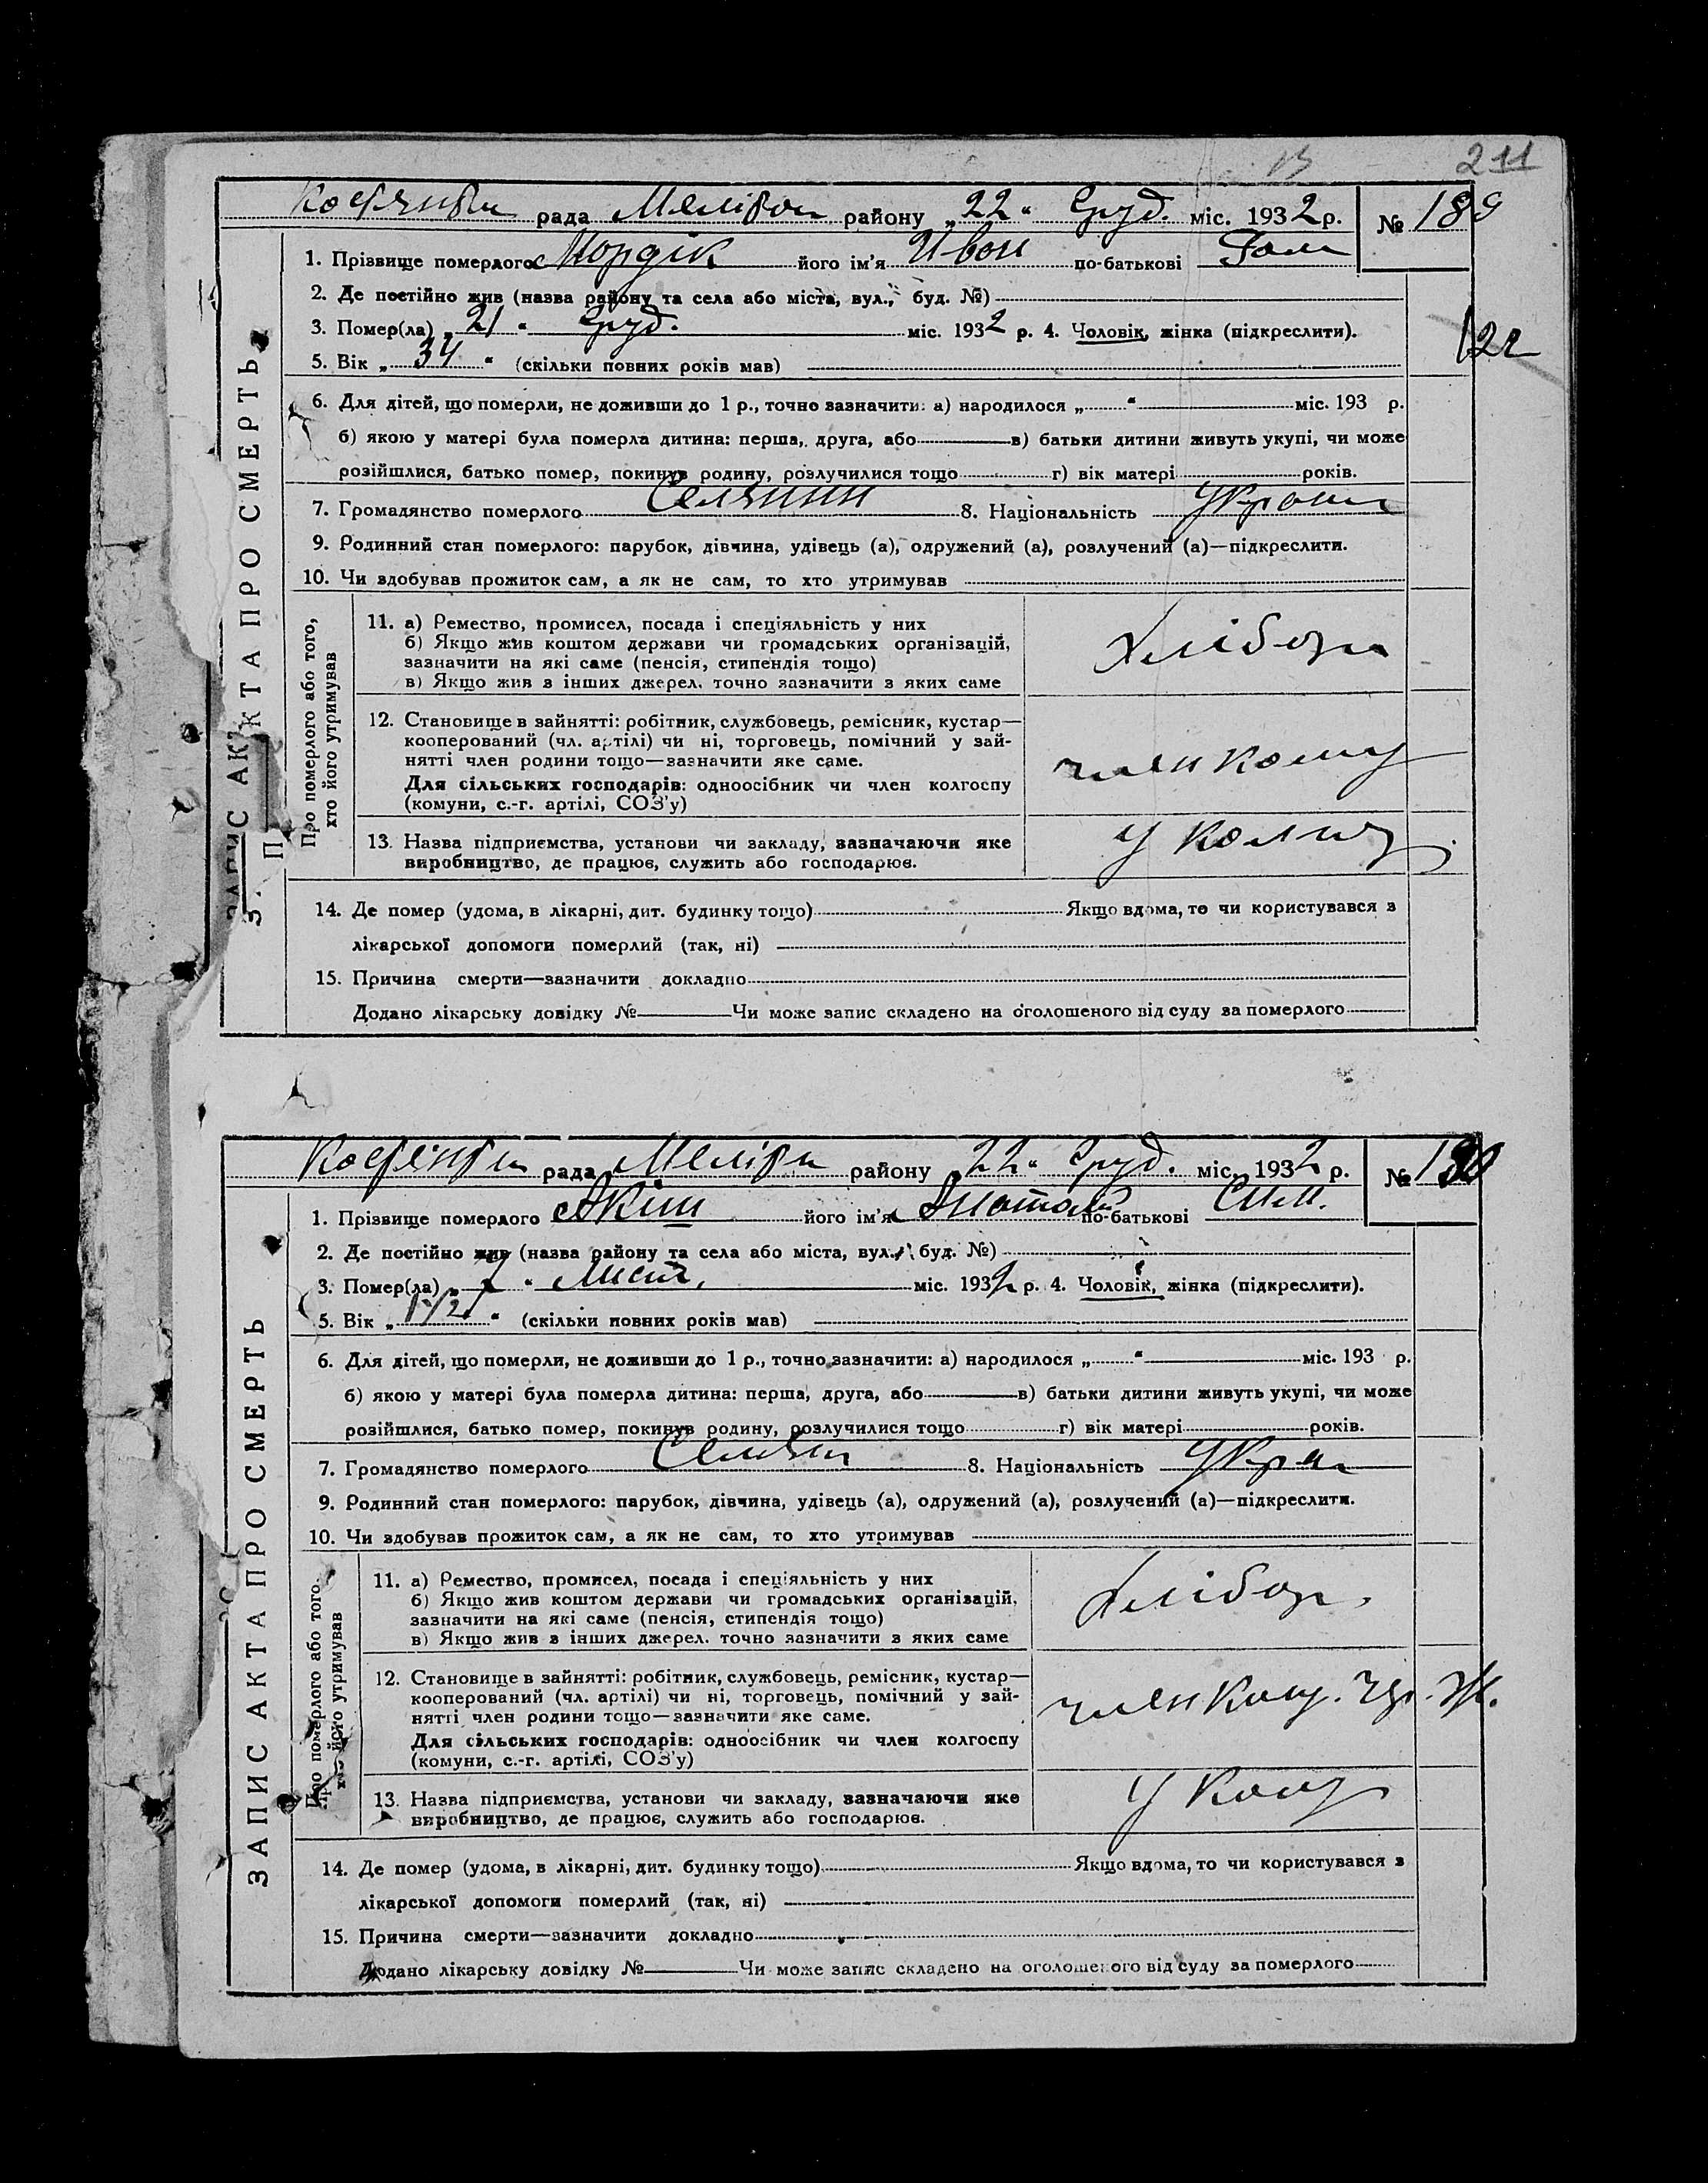 211
рада району „22“ Груд. міс. 1932 р. № 189
1. Прізвище померлого Мордік його ім'я Иван по-батькові
2. Де постійно жив (назва району та села або міста, вул., буд. №)
3. Помер(ла) „21“ Груд. міс. 1932 р. 4. Чоловік, жінка (підкреслити).
5. Вік „34“ (скільки повних років мав)
6. Для дітей, що померли, не доживши до 1 р., точно зазначити: а) народилося „ “ міс. 193 р.
б) якою у матері була померла дитина: перша, друга, або в) батьки дитини живуть укупі, чи може
розійшлися, батько помер, покинув родину, розлучилися тощо г) вік матері років.
7. Громадянство померлого Селянин 8. Національність
9. Родинний стан померлого: парубок, дівчина, удівець (а), одружений (а), розлучений (а)—підкреслити.
10. Чи здобував прожиток сам, а як не сам, то хто утримував
Про померлого або того, хто його утримував
11. а) Ремество, промисел, посада і спеціяльність у них
б) Якщо жив коштом держави чи громадських організацій,
зазначити на які саме (пенсія, стипендія тощо)
в) Якщо жив з інших джерел, точно зазначити з яких саме
12. Становище в зайнятті: робітник, службовець, ремісник, кустар—
кооперований (чл. артілі) чи ні, торговець, помічний у зай-
нятті член родини тощо—зазначити яке саме.
Для сільських господарів: одноосібник чи член колгоспу
(комуни, с.-г. артілі, СОЗ'у)
член
13. Назва підприємства, установи чи закладу, зазначаючи яке
виробництво, де працює, служить або господарює.
у
14. Де помер (удома, в лікарні, дит. будинку тощо) Якщо вдома, то чи користувався з
лікарської допомоги померлий (так, ні)
15. Причина смерти—зазначити докладно
Додано лікарську довідку № Чи може запис складено на оголошеного від суду за померлого
ЗАПИС АКТА ПРО СМЕРТЬ
рада району „22“ Груд. міс. 1932 р. № 190
1. Прізвище померлого Якіш його ім'я по-батькові
2. Де постійно жив (назва району та села або міста, вул., буд. №)
3. Помер(ла) „7“ міс. 1932 р. 4. Чоловік, жінка (підкреслити).
5. Вік „1 1/2“ (скільки повних років мав)
6. Для дітей, що померли, не доживши до 1 р., точно зазначити: а) народилося „ “ міс. 193 р.
б) якою у матері була померла дитина: перша, друга, або в) батьки дитини живуть укупі, чи може
розійшлися, батько помер, покинув родину, розлучилися тощо г) вік матері років.
7. Громадянство померлого 8. Національність
9. Родинний стан померлого: парубок, дівчина, удівець (а), одружений (а), розлучений (а)—підкреслити.
10. Чи здобував прожиток сам, а як не сам, то хто утримував
Про померлого або того, хто його утримував
11. а) Ремество, промисел, посада і спеціяльність у них
б) Якщо жив коштом держави чи громадських організацій,
зазначити на які саме (пенсія, стипендія тощо)
в) Якщо жив з інших джерел, точно зазначити з яких саме
12. Становище в зайнятті: робітник, службовець, ремісник, кустар—
кооперований (чл. артілі) чи ні, торговець, помічний у зай-
нятті член родини тощо—зазначити яке саме.
Для сільських господарів: одноосібник чи член колгоспу
(комуни, с.-г. артілі, СОЗ'у)
член
13. Назва підприємства, установи чи закладу, зазначаючи яке
виробництво, де працює, служить або господарює.
у
14. Де помер (удома, в лікарні, дит. будинку тощо) Якщо вдома, то чи користувався з
лікарської допомоги померлий (так, ні)
15. Причина смерти—зазначити докладно
Додано лікарську довідку № Чи може запис складено на оголошеного від суду за померлого
ЗАПИС АКТА ПРО СМЕРТЬ